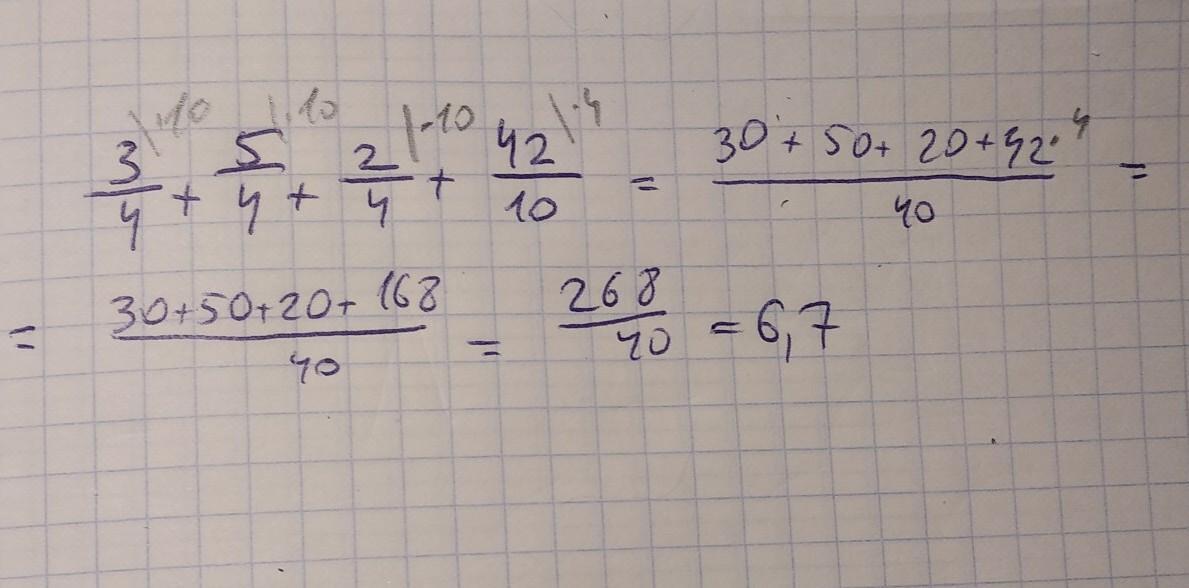 3/4 \·10 + 5/4 \·10 + 2/4 \·10 + 42/10 \·4 = (30 + 50 + 20 + 42·4)/40 =
= (30+50+20+168)/40 = 268/40 = 6,7